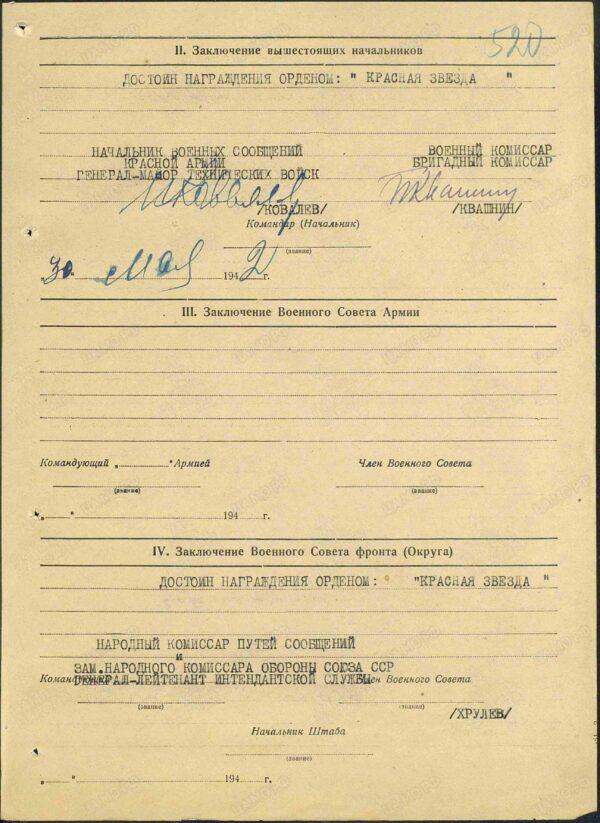 520
II. Заключение вышестоящих начальников
ДОСТОИН НАГРАЖДЕНИЯ ОРДЕНОМ: " КРАСНАЯ ЗВЕЗДА "
НАЧАЛЬНИК ВОЕННЫХ СООБЩЕНИЙ ВОЕННЫЙ КОМИССАР
КРАСНОЙ АРМИИ БРИГАДНЫЙ КОМИССАР
ГЕНЕРАЛ-МАЙОР ТЕХНИЧЕСКИХ ВОЙСК
/КОВАЛЕВ/ /КВАШНИН/
Командир (Начальник)
(звание)
„30" мая 1942 г.
III. Заключение Военного Совета Армии
Командующий „ " Армией Член Военного Совета
(звание) (звание)
„ " 194 г.
IV. Заключение Военного Совета фронта (Округа)
ДОСТОИН НАГРАЖДЕНИЯ ОРДЕНОМ: "КРАСНАЯ ЗВЕЗДА "
НАРОДНЫЙ КОМИССАР ПУТЕЙ СООБЩЕНИЙ
И
ЗАМ.НАРОДНОГО КОМИССАРА ОБОРОНЫ СОЮЗА ССР
ГЕНЕРАЛ-ЛЕЙТЕНАНТ ИНТЕНДАНТСКОЙ СЛУЖБЫ Член Военного Совета
(звание) (звание)
/ХРУЛЕВ/
Начальник Штаба
(звание)
„ " 194 г.